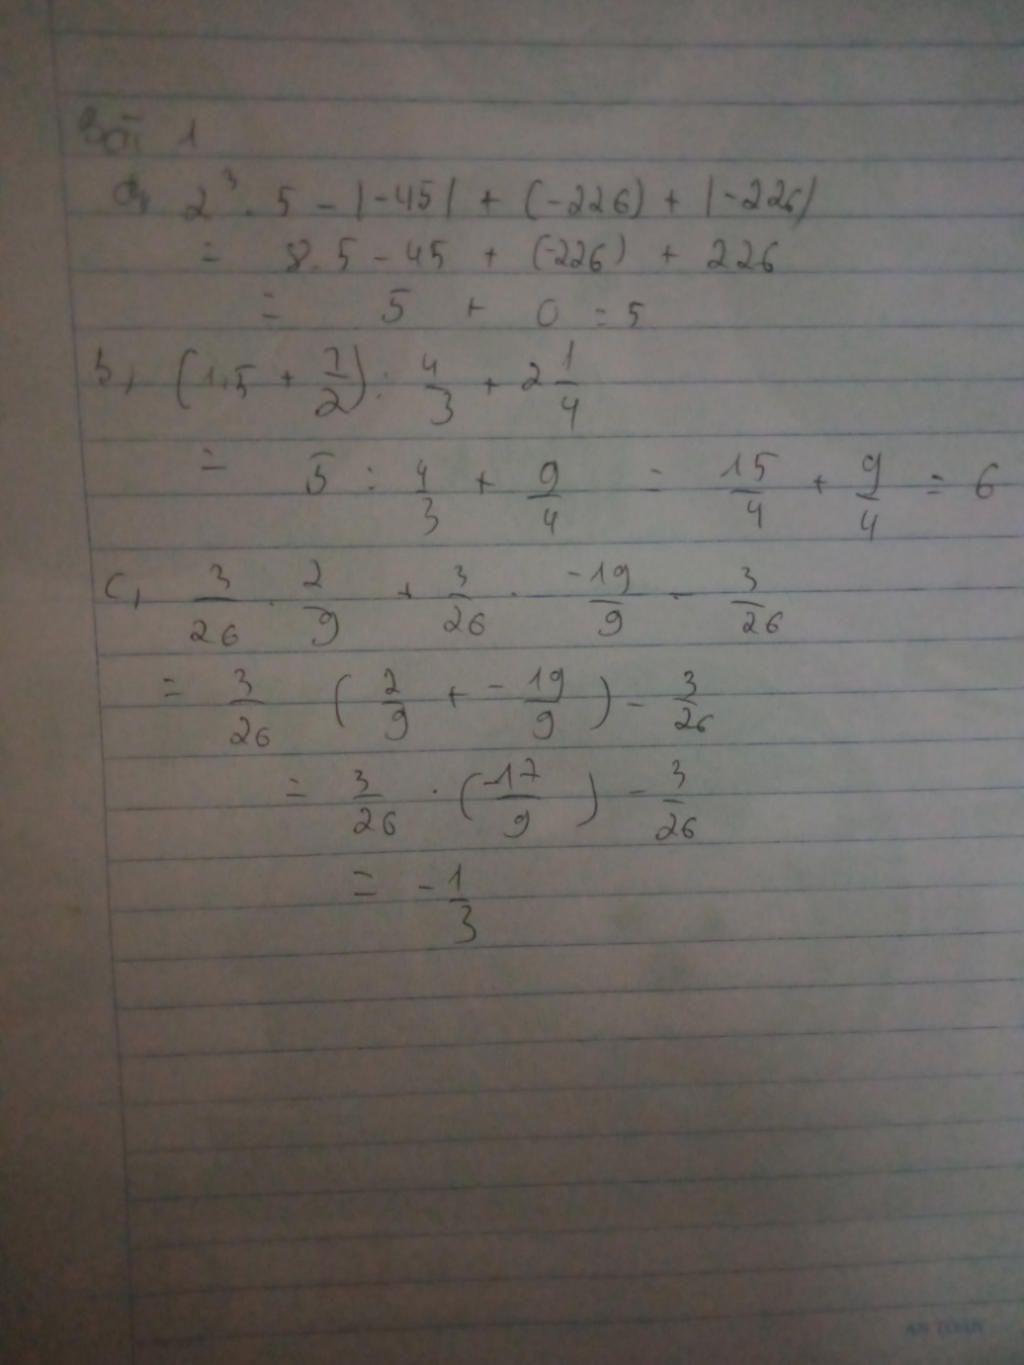 Bài 1
a, 2³ . 5 - |-45| + (-226) + |-226|
= 8.5 - 45 + (-226) + 226
= 5 + 0 = 5
b, (1,5 + 7/2) : 4/3 + 2 1/4
= 5 : 4/3 + 9/4 = 15/4 + 9/4 = 6
c, 3/26 . 2/9 + 3/26 . -19/9 - 3/26
= 3/26 (2/9 + -19/9) - 3/26
= 3/26 . (-17/9) - 3/26
= -1/3
AN TOÀN